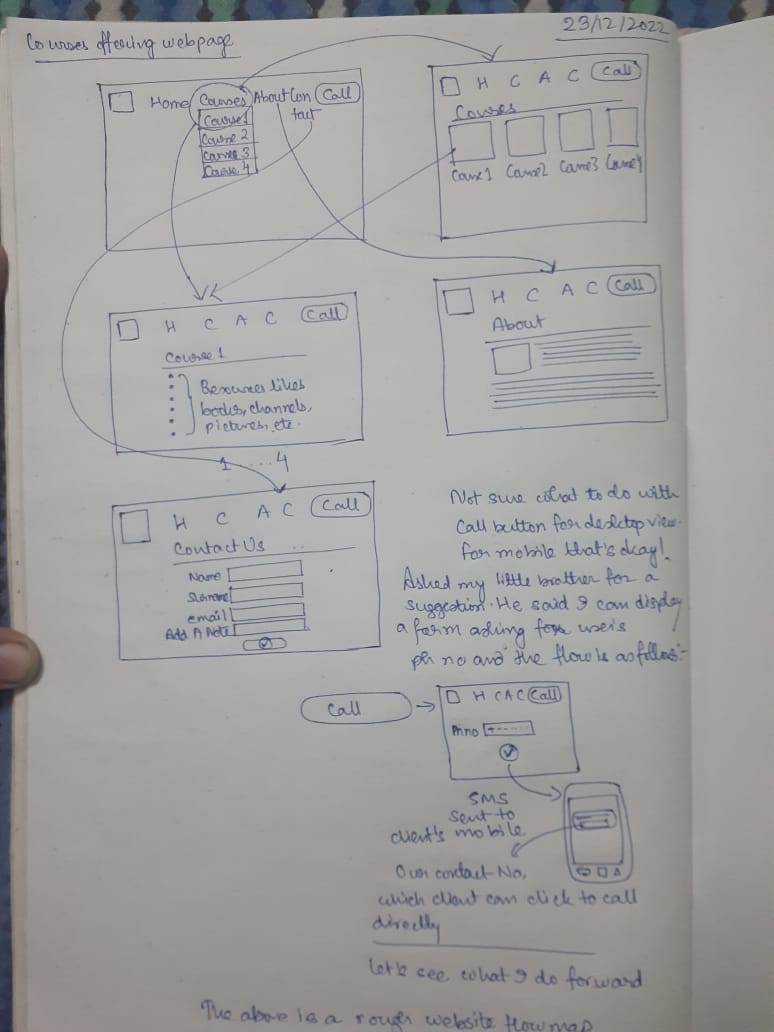 Courses offering webpage
23/12/2022
Home Courses About Con Call
tact
Course 1
Course 2
Course 3
Course 4
H C A C Call
Courses
Course 1 Course 2 Course 3 Course 4
H C A C Call
Course 1
Resources likes
books, channels,
pictures, etc.
1 .... 4
H C A C Call
About
H C A C Call
Contact Us
Name
Surname
email
Add A Note
Not sure what to do with
Call button for desktop view.
for mobile that's okay!
Asked my little brother for a
suggestion. He said I can display
a form asking for user's
ph no and the flow is as follows:-
Call
H C A C Call
Ph no
SMS
sent to
client's mobile
Our contact No,
which client can click to call
directly
Let's see what I do forward
The above is a rough website flow map